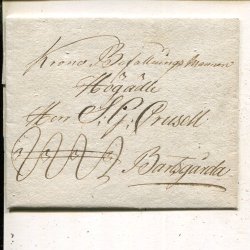 Krono Befallnings Mannen
Högädle
Herr S. G. Crusell
Barsgårda